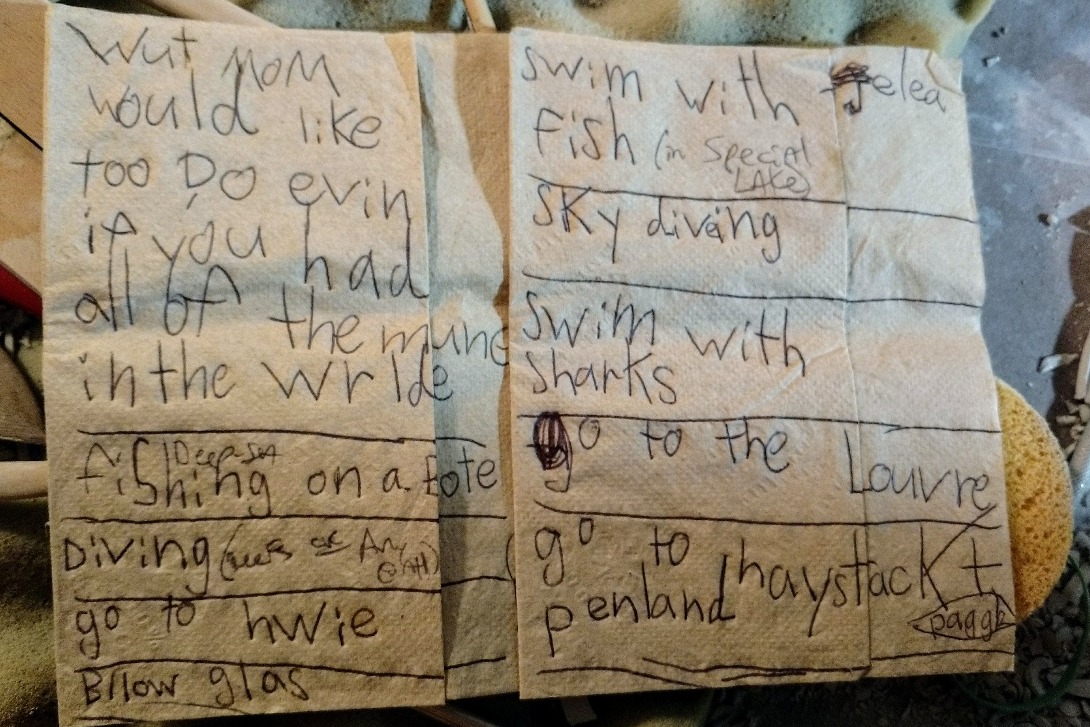 Wut Mom
would like
too Do evin
if you had
all of the mune
in the wrlde
Deep-sea
fishing on a bote
Diving (
go to hwie
Bllow glas
swim with jelea
fish (in Special
LAKe)
SKy diveing
swim with
sharks
go to the Louvre
go to
penland / haystack
pagge